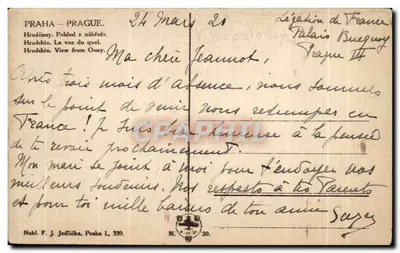 PRAHA – PRAGUE.
Hradčany. Pohled z nábřeží.
Hradchin. La vue du quai.
Hradchin. View from Quay.
24 Mars 21
Légation de France
Palais Bucquoy
Prague III
Ma chère Jeannot,
Après trois mois d'absence, nous sommes
sur le point de venir nous retremper en
France ! Je suis bien heureuse à la pensée
de te revoir prochainement.
Mon mari se joint à moi pour t'envoyer nos
meilleurs souvenirs. Nos respects à tes Parents
et pour toi mille baisers de ton amie
Nakl. F. J. Jedlička, Praha I., 339.
N. 20.